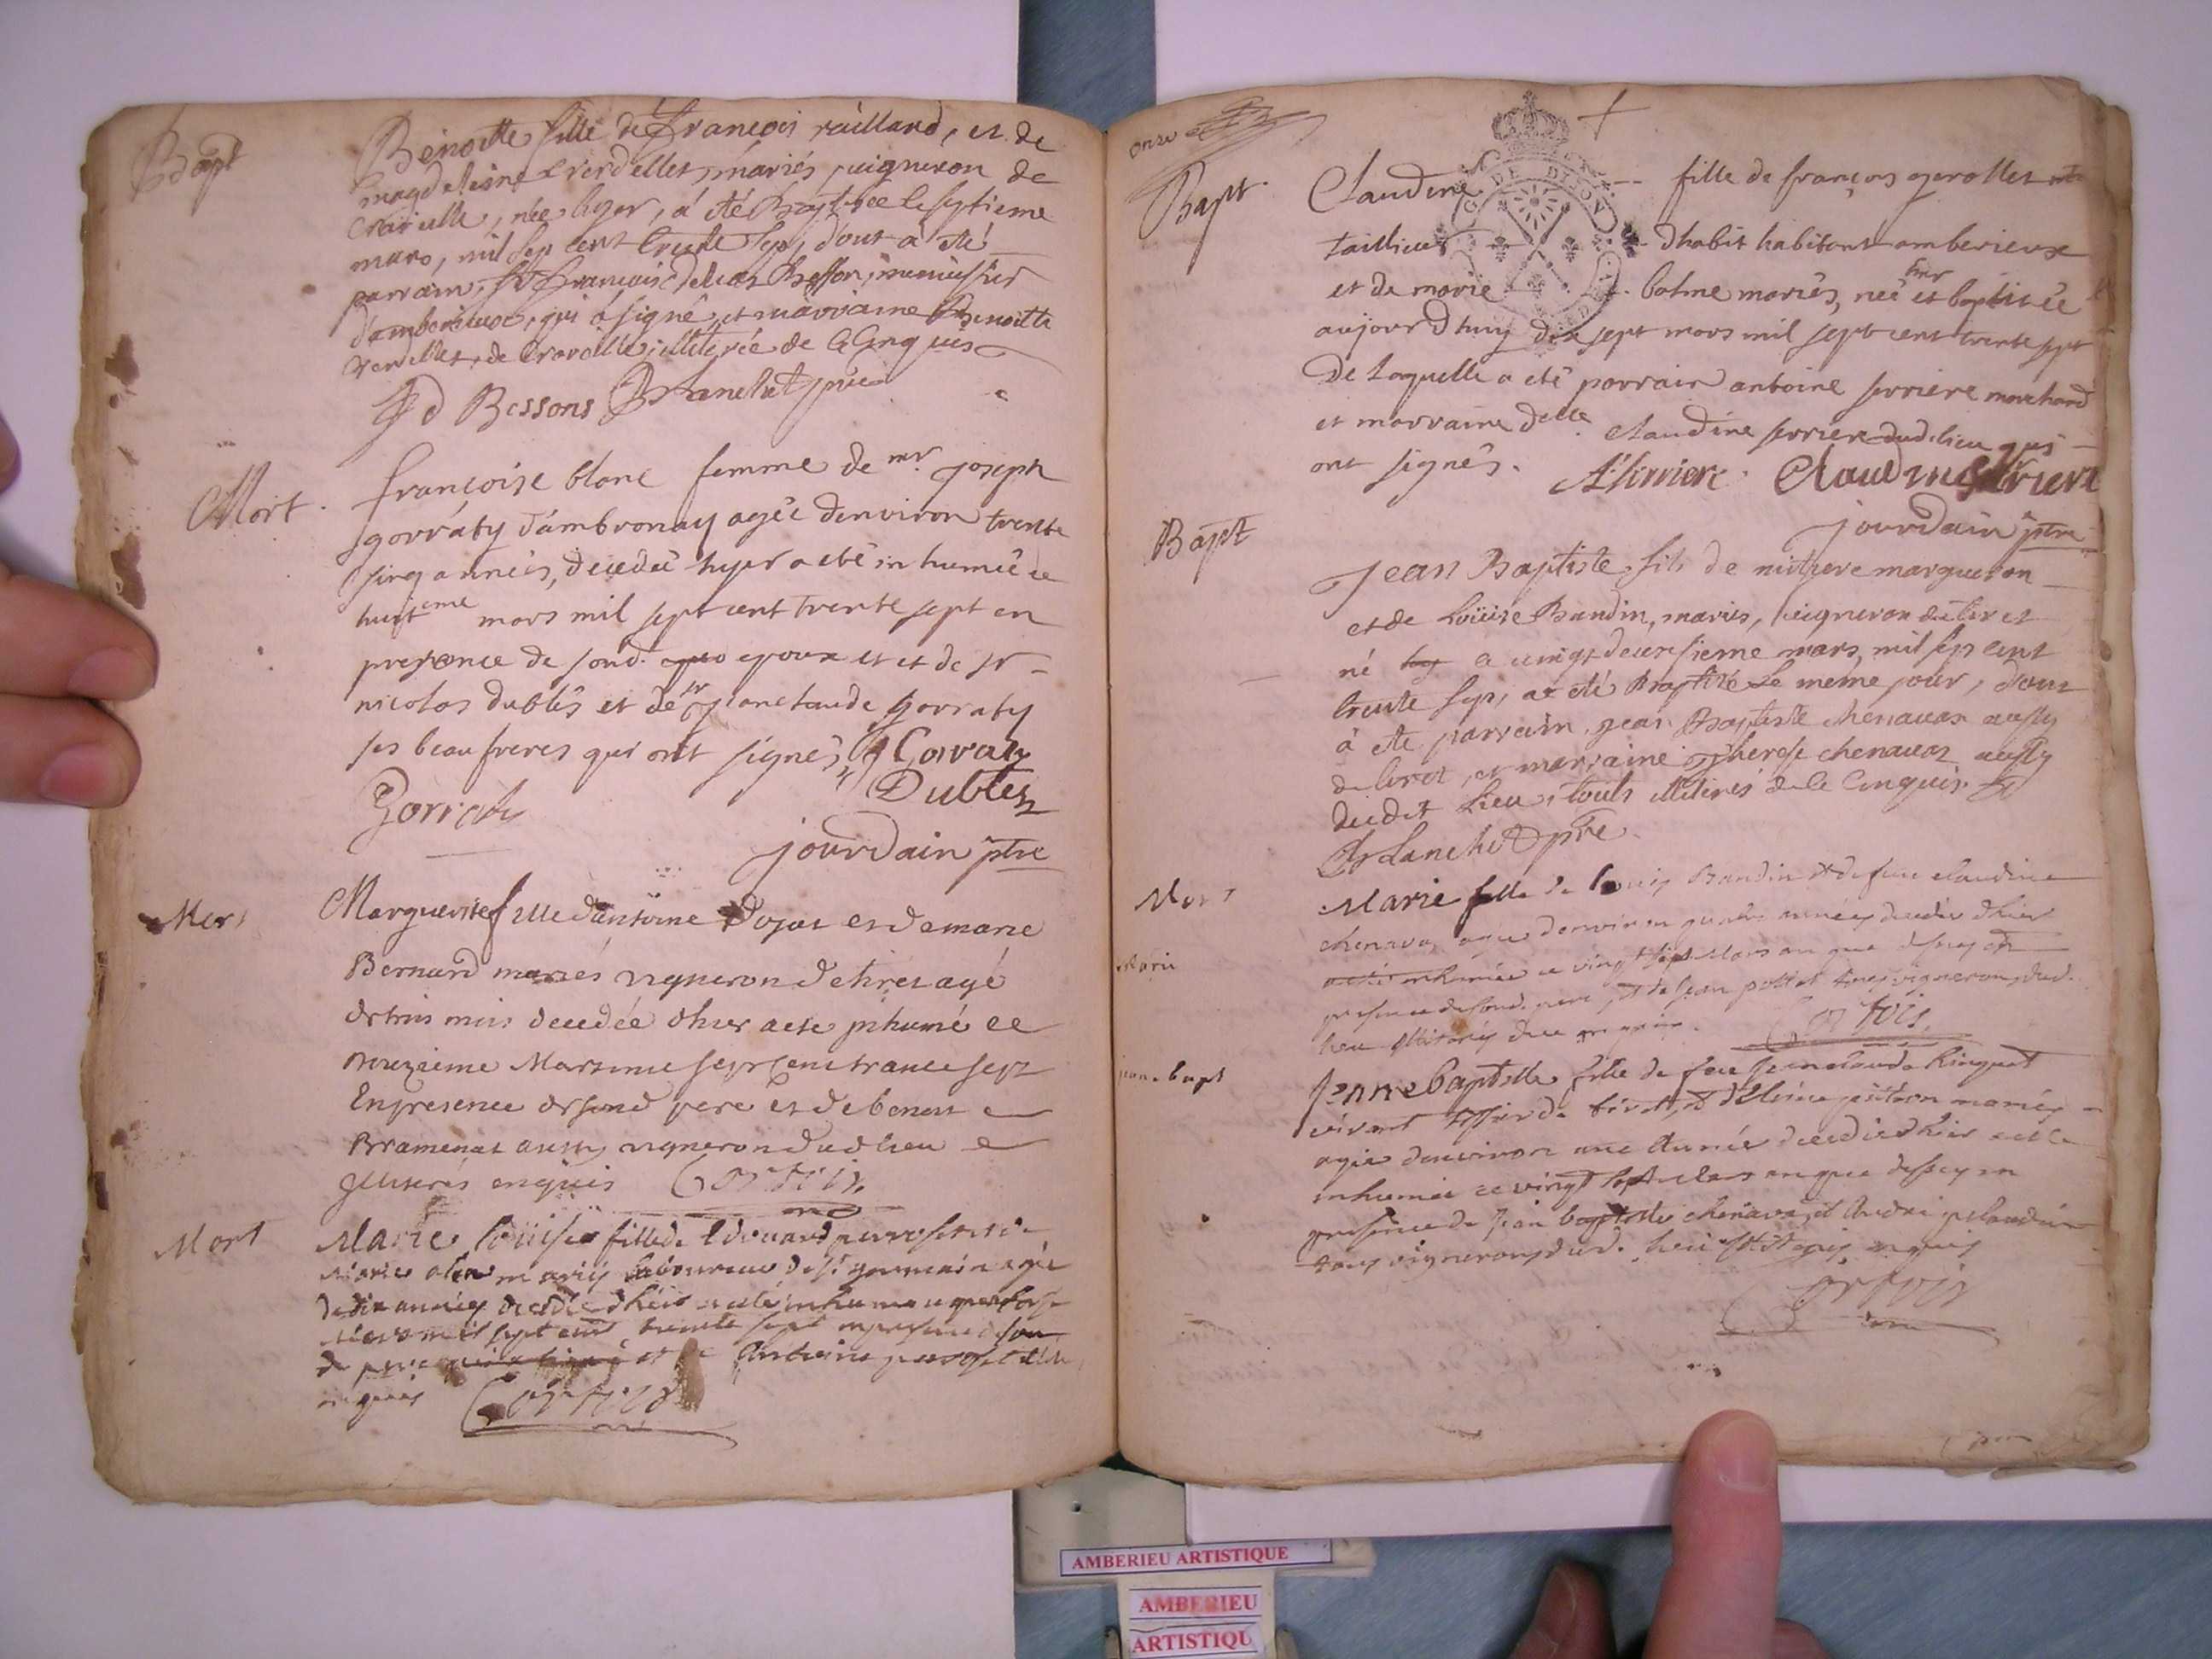 Bapt
Benoitte fille de françois raillard, et de
magdeleine verdellet, mariés, vigneron de
née hyer, a été Baptisée le septieme
mars, mil sep cent trente sep, dont a été
parrain, sr françois Besson, menuisier
d'amberieux, qui a signé, et marraine Benoitte
de illiterée de ce enquis
Bessons Blanchet ptre
Mort
françoise blanc femme de mr joseph
gorraty d'ambronay agée denviron trente
sinq années, decedée hyer a eté inhumée ce
huitieme mars mil sept cent trente sept en
presence de sond. epoux et et de sr
nicolas dubles et de sr jean claude gorraty
ses beaufreres qui ont signés, J Goraty
Gorraty Dubles
jourdain ptre
Mort
Marguerite fille dantoine et de marie
Bernard mariés vigneron de tiret agé
de trois mois decedée dhier a ete inhumé ce
Mars mil sept cent trante sept
En presence de sond pere et de benoit
Bramerat aussy vigneron dud lieu
illiterés enquis Cortois
Mort
Marie Louise fille de Edouard et de
Marie mariés laboureur de st germain agée
de dix années decedée dhier a esté inhumé
mars mil sept cent trente sept en presence de son
d. pere et de Antoine
enquis Cortois
onze
Bapt
Claudine fille de françois gerollet
taillieur dhabit habitant amberieux
et de marie balme mariés, née hier et baptisée
aujourdhuy dix sept mars mil sept cent trente sept
De laquelle a eté parrain antoine serriere marchand
et marraine delle claudine serriere dud. lieu qui
ont signés. A serriere Claudine Seriere
jourdain ptre
Bapt
Jean Baptiste fils de margueron
et de Louise Bandin, mariés, vigneron de tiret
né le vingt deuxsieme mars, mil sep cent
trente sep, a eté Baptisé le meme jour, dont
a eté parrain, jean Baptiste chenavas aussy
de tiret, et marraine Therese chenavas aussy
dudit Lieu, touts illiterés de ce enquis
Blanchet ptre
Mort
Marie fille de Louis Bandin et de feue claudine
chenavas agée denviron quatre années decedée dhier
Marie
a esté inhumée ce vingt sept Mars an que dessus en
presence de sond. pere, et de jean pollet tous vignerons dud.
lieu illiterés de ce enquis. Cortois
jeane bapt
Jenne baptiste fille de feu jean claude
vivant de tiret, et mariés
agée denviron une Année decedée dhier a esté
inhumée ce vingt sept Mars an que dessus en
presence de jean baptiste chenavas et Andre
tous vignerons dud. lieu illiterés enquis
Cortois
AMBERIEU ARTISTIQUE
AMBERIEU
ARTISTIQU